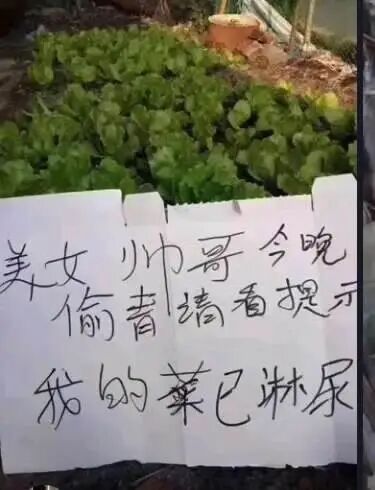 美女 帅哥 今晚
偷青请看提示
我的菜已淋尿